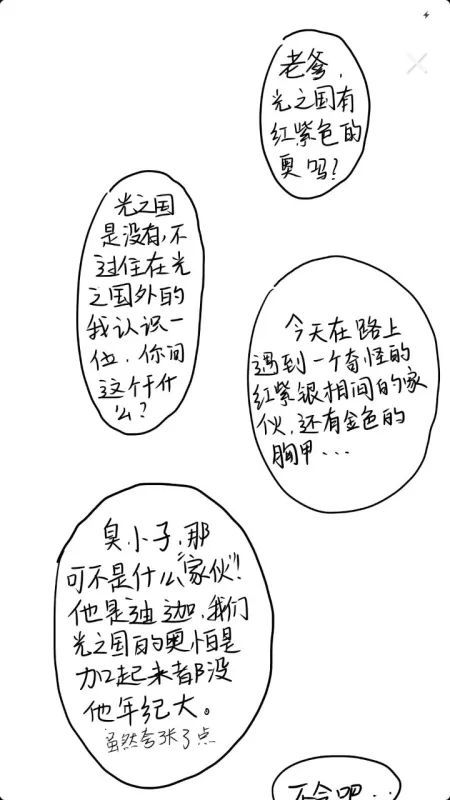 老爹，
光之国有
红紫色的
奥吗？
光之国
是没有，不
过住在光
之国外的
我认识一
位，你问
这个干什
么？
今天在路上
遇到一个奇怪的
红紫银相间的家
伙，还有金色的
胸甲...
臭小子，那
可不是什么“家伙”！
他是迪迦，我们
光之国的奥怕是
加起来都没
他年纪大。
虽然夸张了点
不会吧..